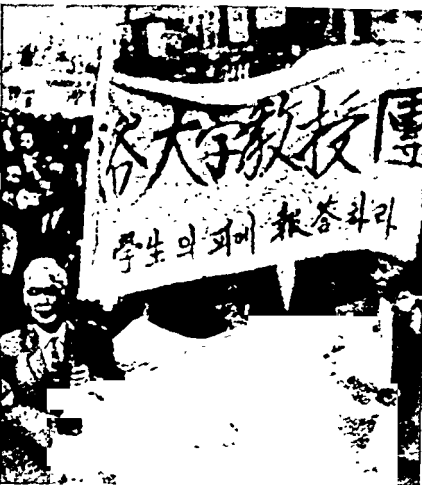 各大学教授團
學生의 피에 報答하라